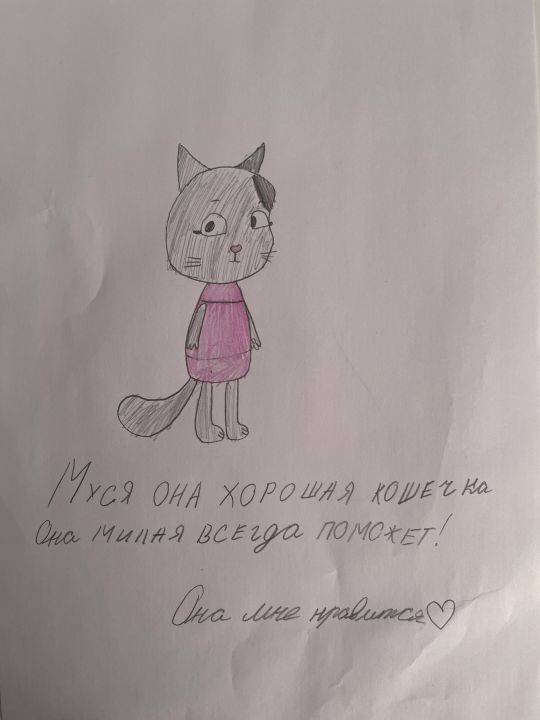 Муся она хорошая кошечка
Она милая всегда поможет!
Она мне нравится♡